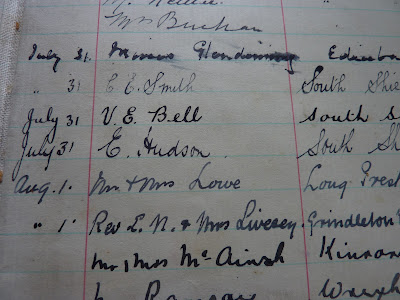 Mrs Buchan
July 31. Glendinning Edinbu
" 31 E E. Smith South Shie
July 31 V. E. Bell South S
July 31 E. Hudson. South Sh
Aug. 1. Mr. & Mrs Lowe Long Prest
" 1. Rev L. N. & Mrs Livesey. Grindleton
Mr & Mrs McAinsh Kinros
Ramsay